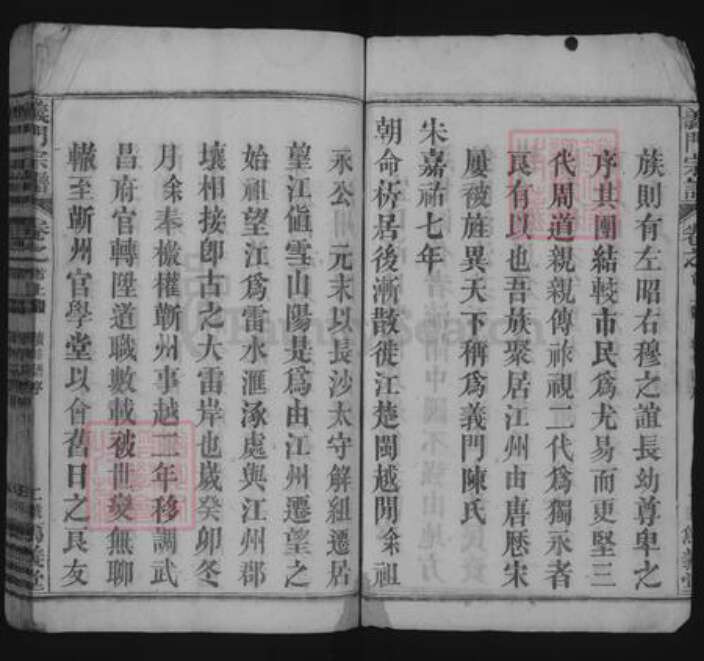 族則有左昭右穆之誼長幼尊卑之
序其團結較市民爲尤易而更堅三
代周道親親傳祚視二代爲獨永者
良有以也吾族聚居江州由唐歷宋
屢被旌異天下稱爲義門陳氏
宋嘉祐七年
朝命析居後漸散徙江楚閩越間余祖
永公 元末以長沙太守解組遷居
望江值雪山陽是爲由江州遷望之
始祖望江爲雷水滙涿處與江州郡
壤相接卽古之大雷岸也歲癸卯冬
月余奉檄權蘄州事越三年移調武
昌府官轉陞道職數載被世變無聊
轍至蘄州官學堂以會舊日之良友
義門宗譜
卷之
義門宗譜
卷之
義堂
FamilySearch